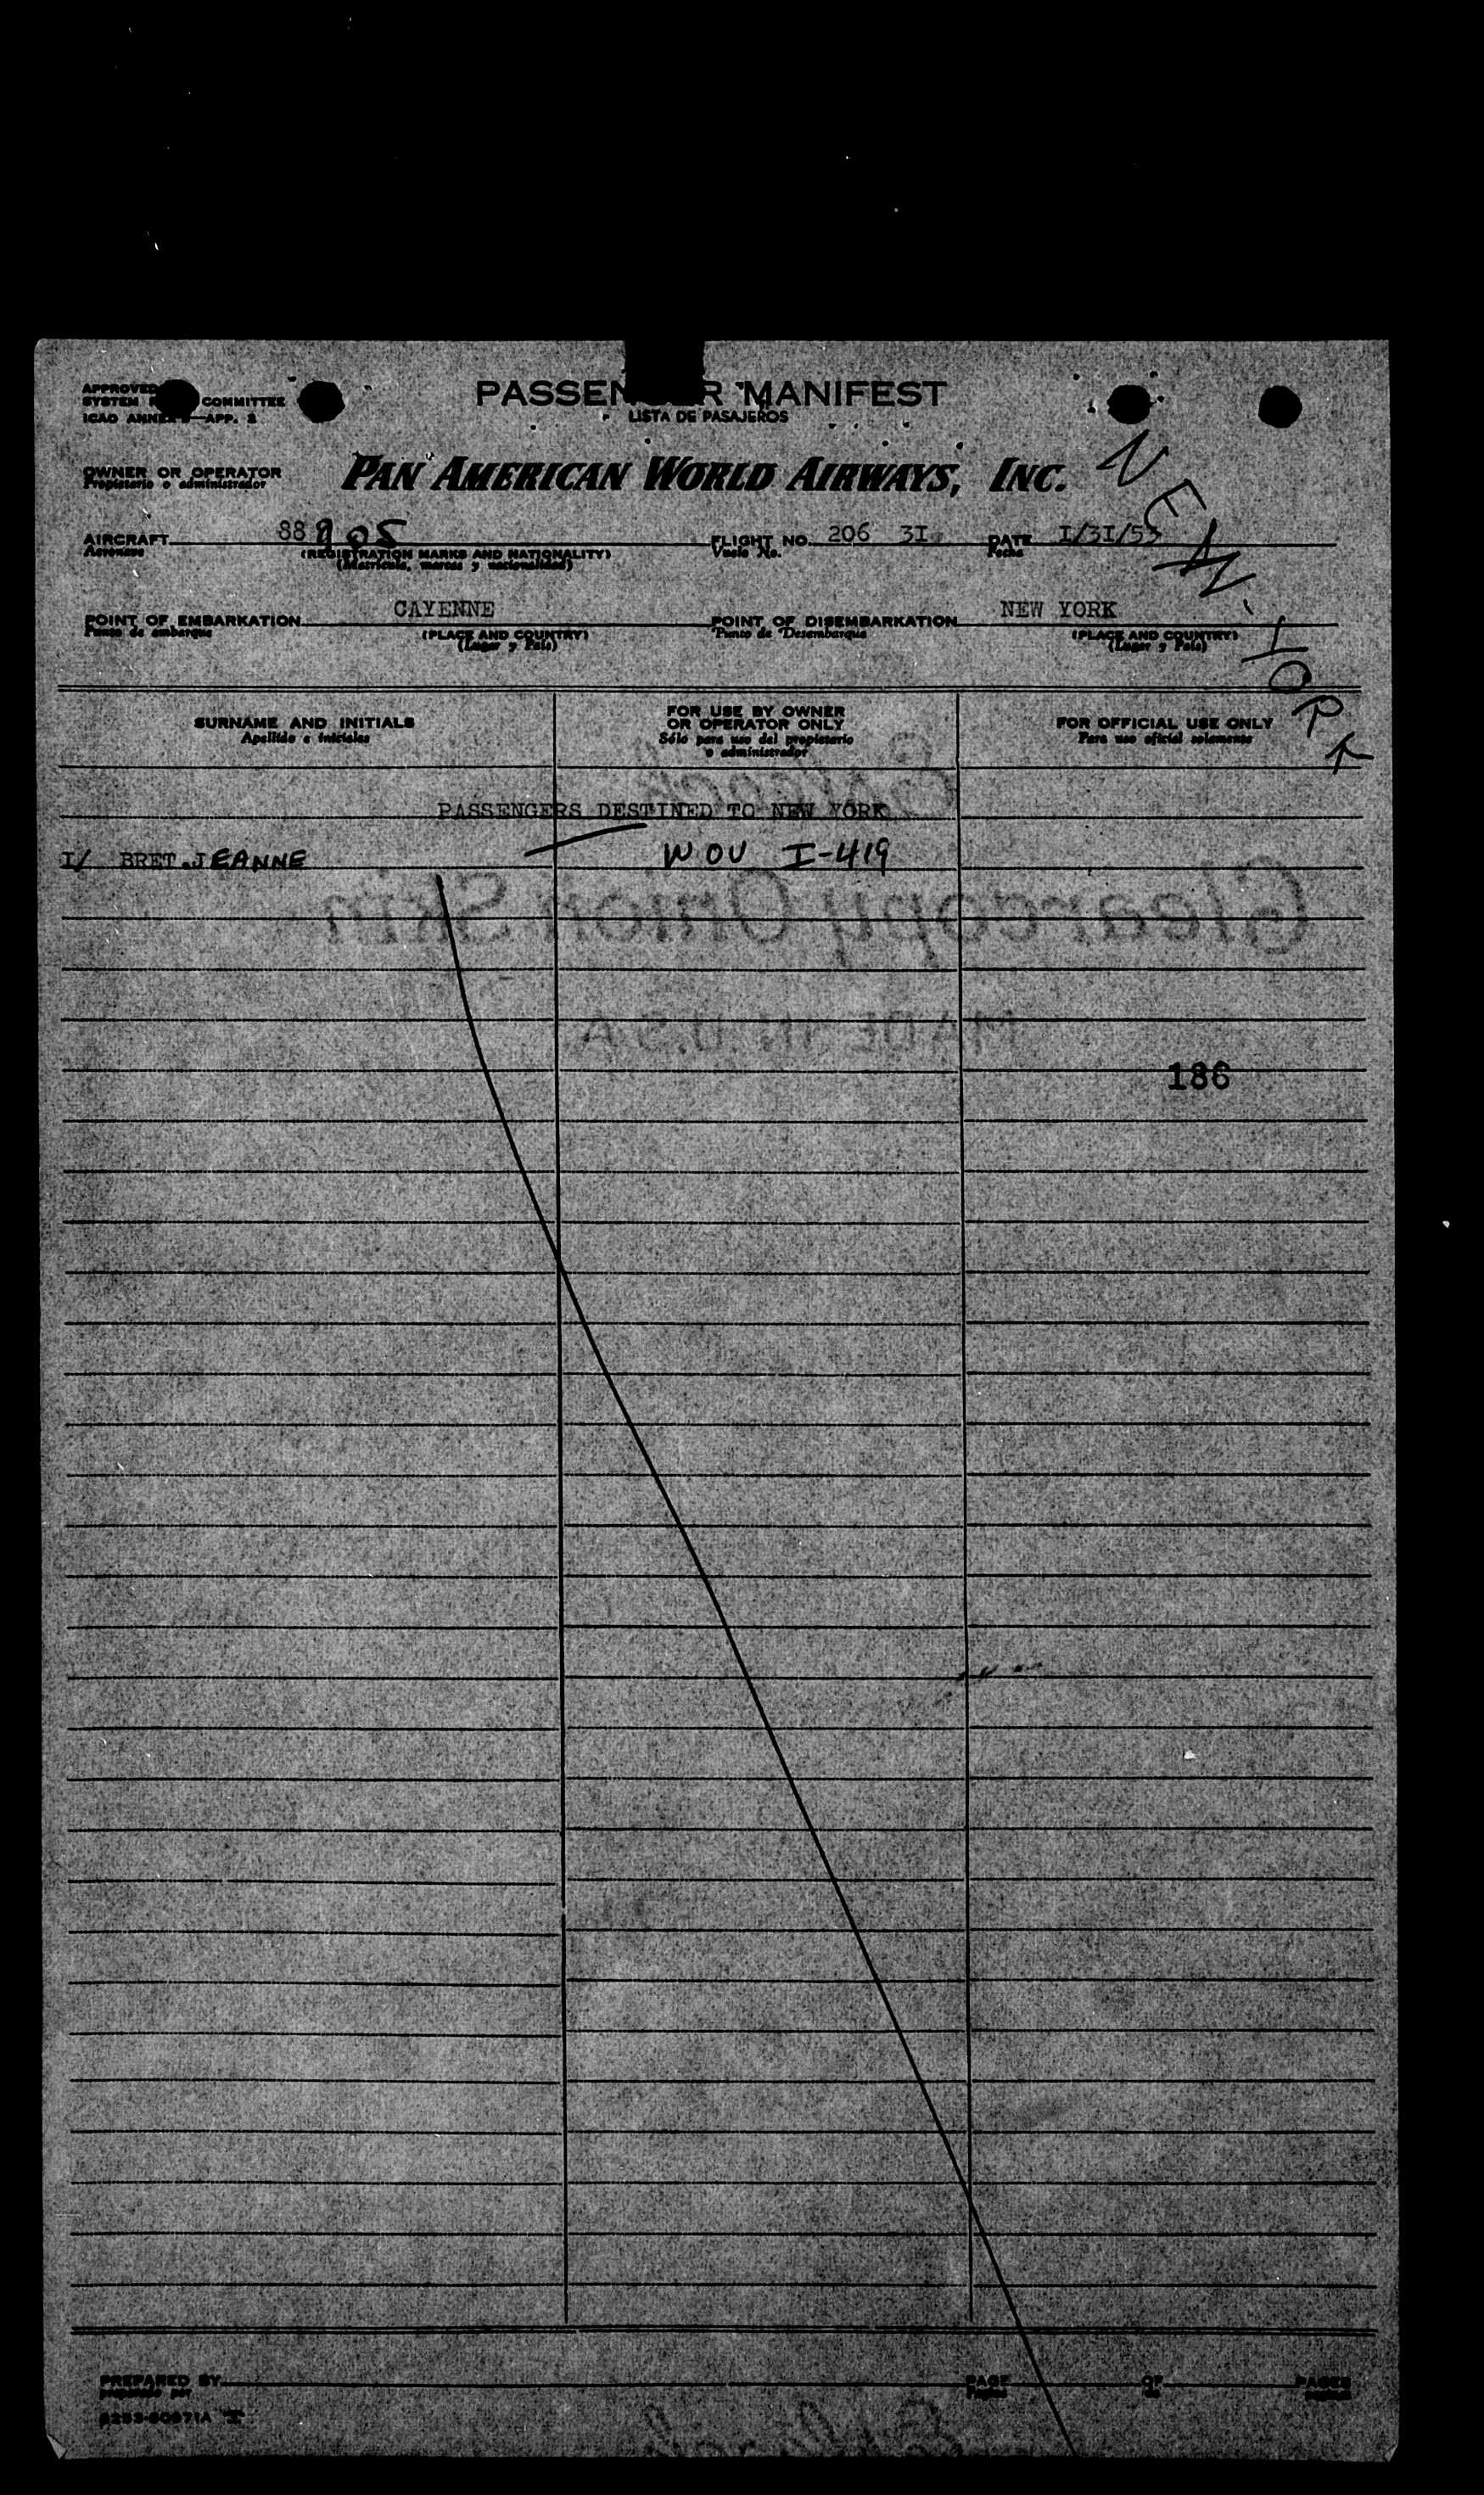 PASSEN R MANIFEST
LISTA DE PASAJEROS
APPROVED
SYSTEM COMMITTEE
ICAO ANNEX —APP. 2
OWNER OR OPERATOR
Propietario o administrador
PAN AMERICAN WORLD AIRWAYS, INC.
NEW-YORK
AIRCRAFT 88905
Aeronave
(REGISTRATION MARKS AND NATIONALITY)
(Matrícula, marcas y nacionalidad)
FLIGHT NO. 206 3I
Vuelo No.
DATE I/3I/53
Fecha
POINT OF EMBARKATION CAYENNE
Punto de embarque
(PLACE AND COUNTRY)
(Lugar y País)
POINT OF DISEMBARKATION NEW YORK
Punto de Desembarque
(PLACE AND COUNTRY)
(Lugar y País)
SURNAME AND INITIALS
Apellido e iniciales
FOR USE BY OWNER
OR OPERATOR ONLY
Sólo para uso del propietario
o administrador
FOR OFFICIAL USE ONLY
Para uso oficial solamente
PASSENGERS DESTINED TO NEW YORK
I/ BRET.JEANNE WOU I-419
Clearcopy Onion Skin
MADE IN U.S.A
186
PREPARED BY
preparado por
PAGE
OF
de
PAGES